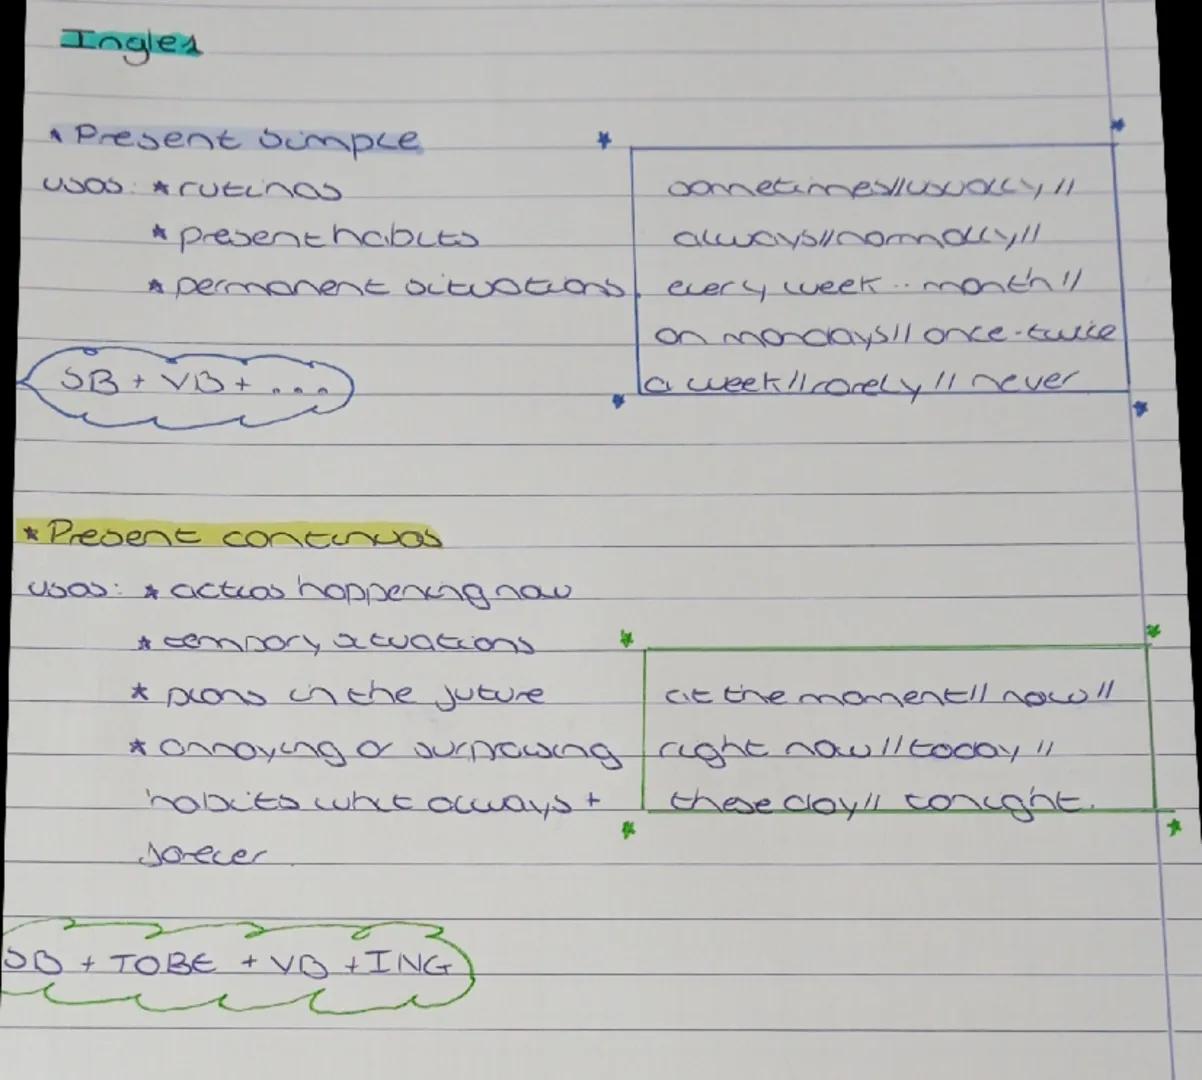 Ingles
* Present Simple
usos: * rutinas
* present habits
* permanent situations
sometimes//usually//
always//normally//
every week .. month//
on mondays// once-twice
a week//rarely// never
SB + VB + ...
* Present continuos
usos: * actios happening now
* tempory situations
* plans in the future
* annoying or surprising
habits whit always +
forever
at the moment// now//
right now//today//
these day// tonight.
SB + TOBE + VB + ING